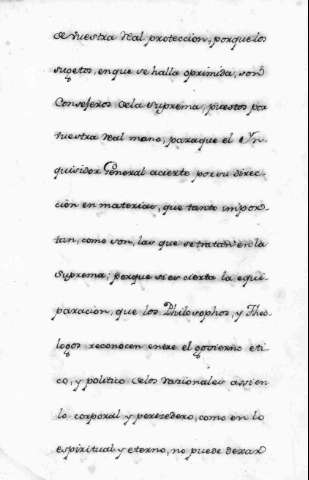 de Vuestra Real proteccion, porque los
sugetos, en que se halla oprimida, son
Consejeros de la Suprema, puestos por
vuestra Real mano, para que el Yn-
quisidor General acierte por su direc-
cion en materias, que tanto impor-
tan, como son, las que se tratan en la
Suprema; porque si es cierta la equi-
paracion, que los Philosophos, y Theo-
logos reconocen entre el govierno eti-
co, y politico de los racionales assi en
lo corporal y perecedero, como en lo
espiritual y eterno, no puede dexar